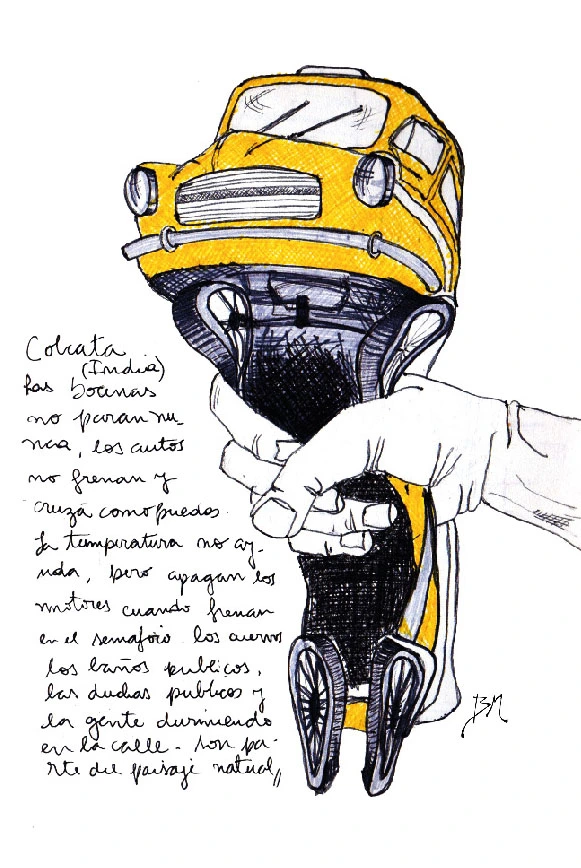 Colcata
(India)
Las bocinas
no paran nu-
nca, los autos
no frenan y
cruzá como puedas.
La temperatura no ay-
uda, pero apagan los
motores cuando frenan
en el semaforo. los cuervos
los baños publicos,
las duchas publicas y
la gente durmiendo
en la calle - son pa-
rte del paisaje natural,,
BM